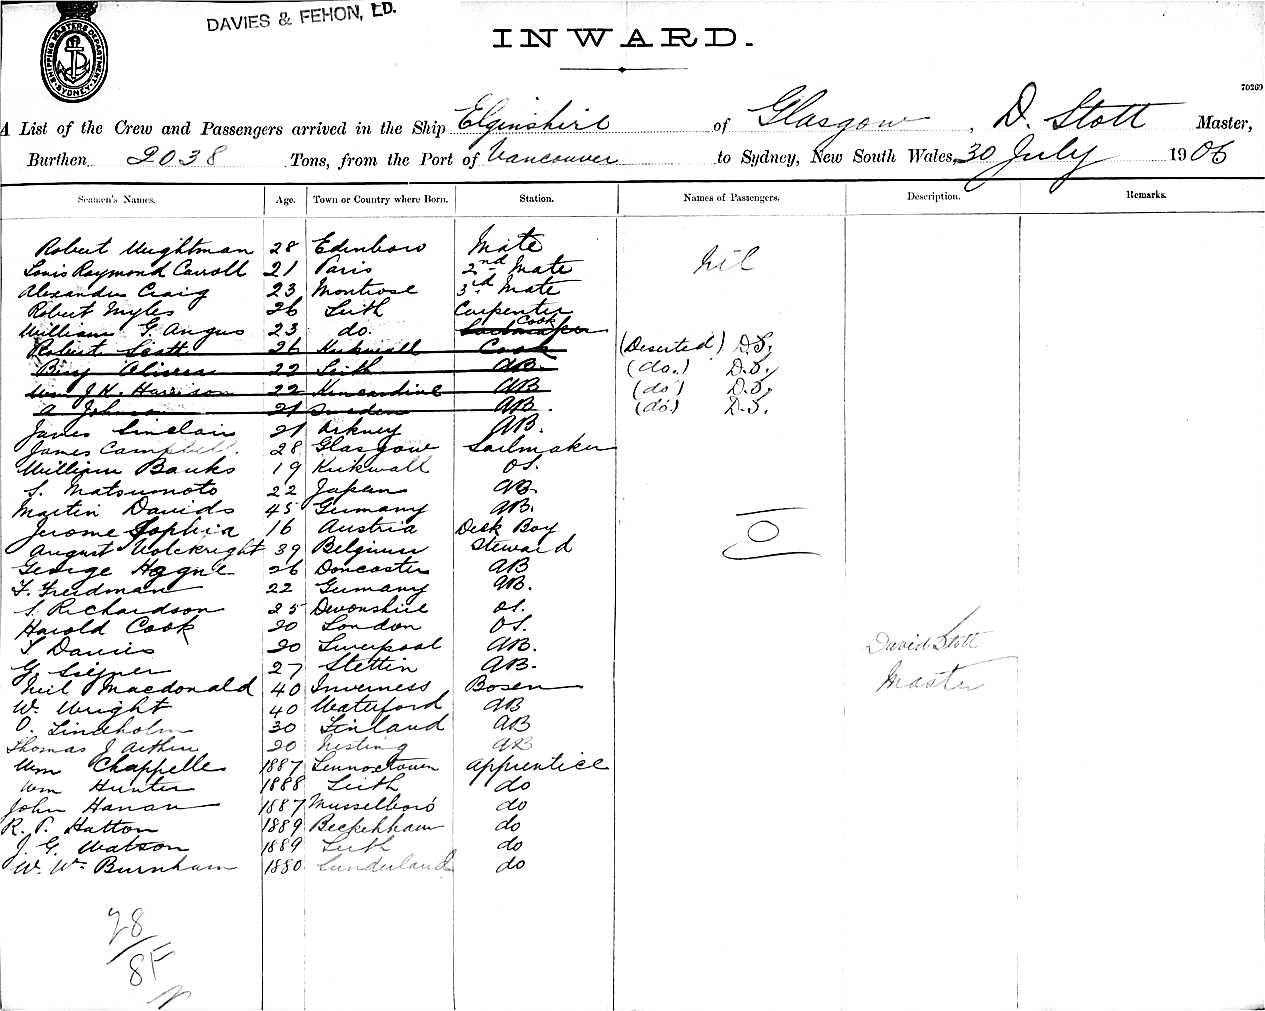 SHIPPING MASTERS DEPARTMENT SYDNEY
DAVIES & FEHON, LD.
INWARD.
70269
A List of the Crew and Passengers arrived in the Ship Elginshire of Glasgow, D. Stott Master,
Burthen 2038 Tons, from the Port of Vancouver to Sydney, New South Wales, 30 July 1906
Seamen's Names. Age. Town or Country where Born. Station. Names of Passengers. Description. Remarks.
Robert Wightman 28 Edinboro Mate
Nil
Louis Raymond Carroll 21 Paris 2nd Mate
Alexander Craig 23 Montrose 3rd Mate
Robert Myles 26 Leith Carpenter
William G. Angus 23 do. Sailmaker Cook
Robert Scott 26 Kirkwall Cook (Deserted) D.S.
22 Leith AB. (do.) D.S.
Wm J.K. Harrison 22 Kincardine AB (do) D.S.
A Johnson 21 Sweden AB. (do) D.S.
James Sinclair 21 Orkney AB.
James Campbell. 28 Glasgow Sailmaker
William Banks 19 Kirkwall OS.
S. Matsumoto 22 Japan AB.
Martin Davids 45 Germany AB.
Jerome Sophia 16 Austria Deck Boy
August 39 Belgium Steward
George Hagne 26 Doncaster AB
F. Freidman 22 Germany AB.
S. Richardson 25 Devonshire OS.
Harold Cook 20 London OS.
T Davies 20 Liverpool AB.
David Stott
G. 27 Stettin AB.
Neil Macdonald 40 Inverness Bosen
Master
W. Wright 40 Waterford AB
O. Lindholm 30 Finland AB
Thomas J Aitken 20 Nesting AB
Wm Chappelle 1887 Lennoxtown Apprentice
Wm Hunter 1888 Leith do
John Hanan 1887 Musselboro do
R. P. Hatton 1889 Beckenham do
J. G. Watson 1889 Leith do
W. Wm Burnham 1880 Sunderland do
28
8F